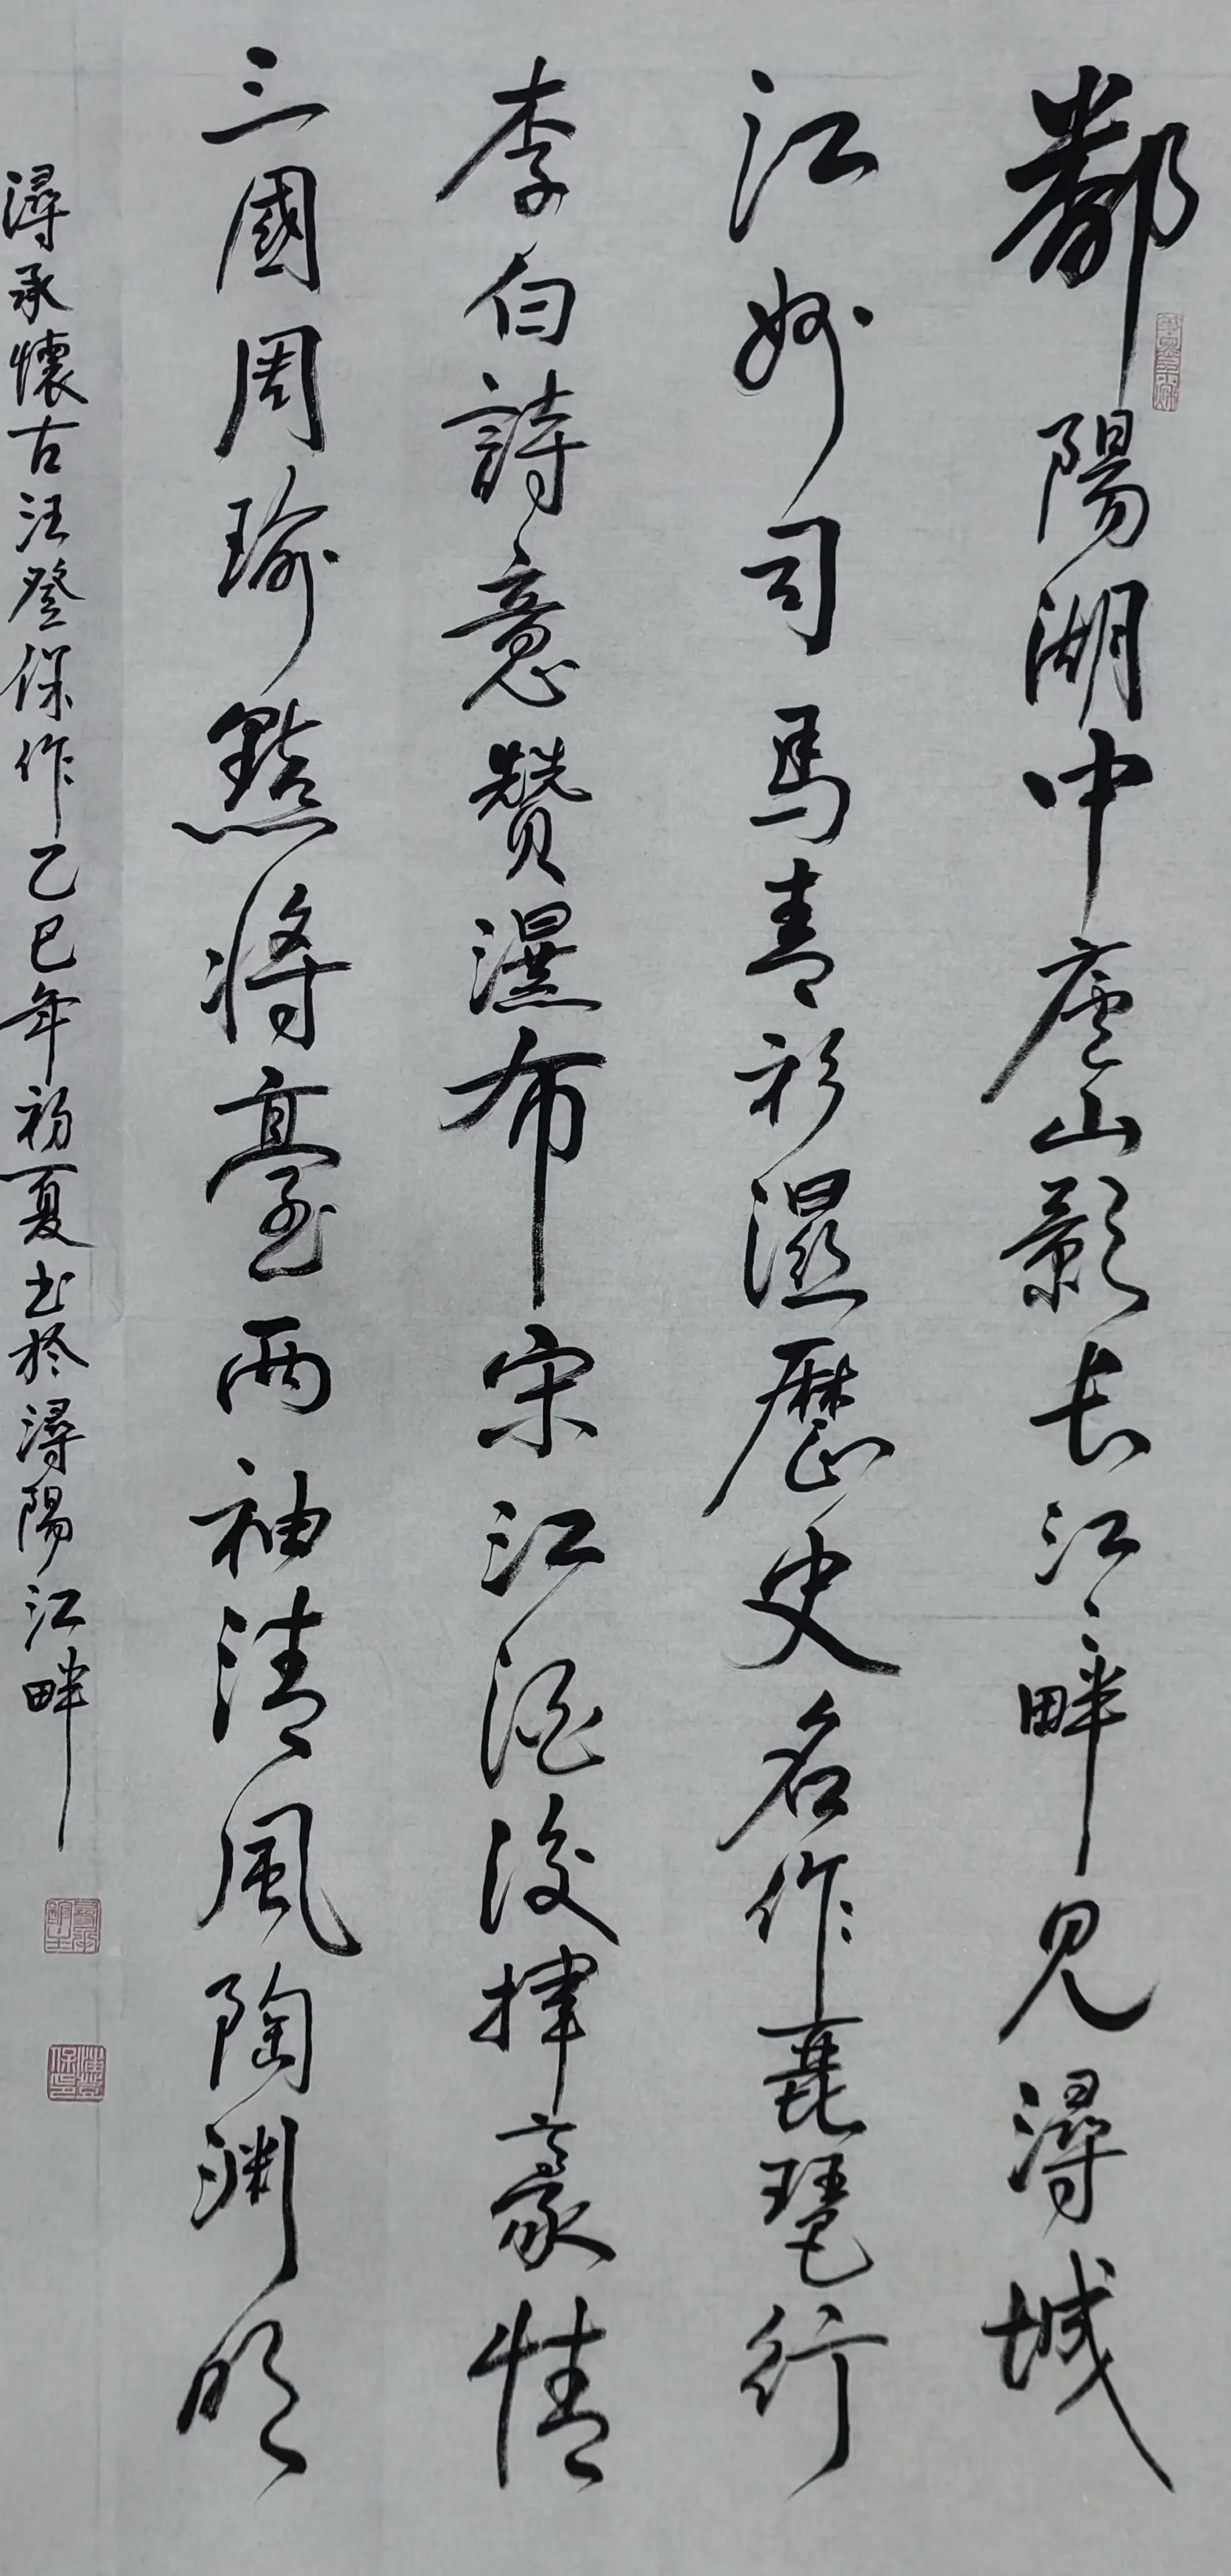 鄱陽湖中廬山影长江畔見潯城
江州司馬青衫濕歷史名作琵琶行
李白詩意贊瀑布宋江酒後揮豪情
三國周瑜點將臺兩袖清風陶渊明
潯承懷古汪登保作乙巳年初夏书於潯陽江畔